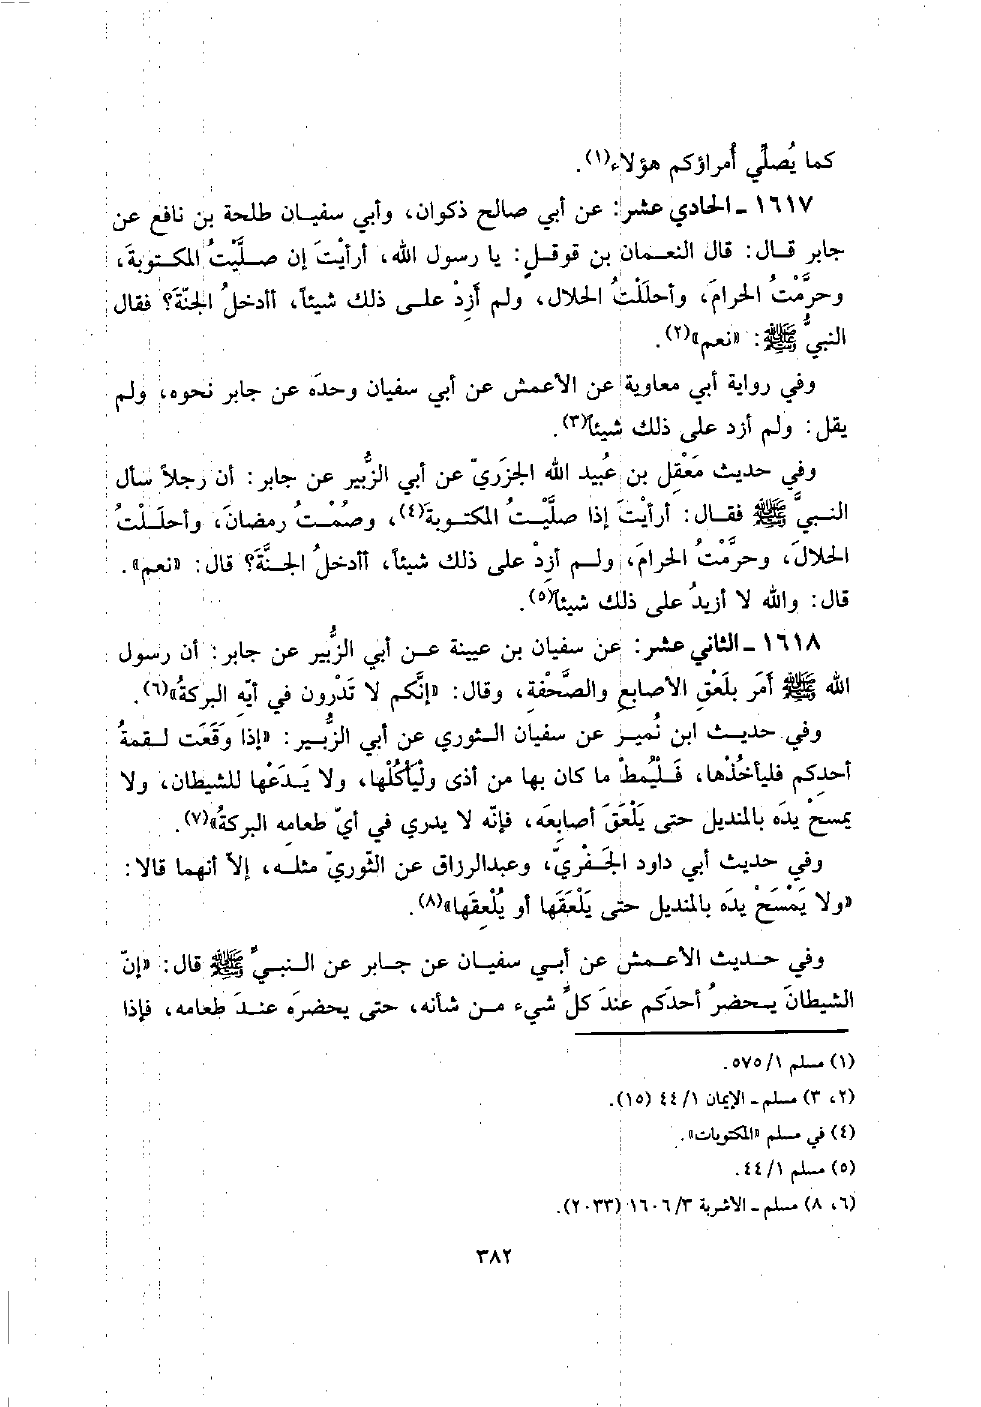 كما يُصلِّي أُمراؤكم هؤلاء(١).
١٦١٧ - الحادي عشر: عن أبي صالح ذكوان، وأبي سفيان طلحة بن نافع عن
جابر قال: قال النعمان بن قوقلٍ: يا رسول الله، أرأيْتَ إن صلَّيْتُ المكتوبة،
وحرَّمْتُ الحرامَ، وأحلَلْتُ الحلال، ولم أَزِدْ على ذلك شيئاً، أأدخلُ الجنّةَ؟ فقال
النبيُّ ﷺ: «نعم»(٢).
وفي رواية أبي معاوية عن الأعمش عن أبي سفيان وحدَه عن جابر نحوه، ولم
يقل: ولم أزد على ذلك شيئاً(٣).
وفي حديث مَعْقِل بن عُبيد الله الجزَريّ عن أبي الزُّبير عن جابر: أن رجلاً سأل
النبيَّ ﷺ فقال: أرأيْتَ إذا صلَّيْتُ المكتوبة(٤)، وصُمْتُ رمضانَ، وأحلَلْتُ
الحلالَ، وحرَّمْتُ الحرامَ، ولم أزِدْ على ذلك شيئاً، أأدخلُ الجنَّةَ؟ قال: «نعم».
قال: والله لا أزيدُ على ذلك شيئاً(٥).
١٦١٨ - الثاني عشر: عن سفيان بن عيينة عن أبي الزُّبير عن جابر: أن رسول
الله ﷺ أمَر بلَعْقِ الأصابعِ والصَّحْفةِ، وقال: «إنَّكم لا تَدْرون في أيّهِ البركةُ»(٦).
وفي حديث ابن نُمير عن سفيان الثوري عن أبي الزُّبير: «إذا وقَعَت لقمةُ
أحدِكم فليأخُذْها، فَلْيُمِطْ ما كان بها من أذى ولْيَأْكُلْها، ولا يَدَعْها للشيطان، ولا
يمسحْ يدَه بالمنديل حتى يَلْعَقَ أصابعَه، فإنّه لا يدري في أيّ طعامِه البركةُ»(٧).
وفي حديث أبي داود الحَفْريّ، وعبدالرزاق عن الثّوريّ مثله، إلاّ أنهما قالا:
«ولا يَمْسَحْ يدَه بالمنديل حتى يَلْعَقَها أو يُلْعِقَها»(٨).
وفي حديث الأعمش عن أبي سفيان عن جابر عن النبيِّ ﷺ قال: «إنّ
الشيطانَ يحضرُ أحدَكم عندَ كلِّ شيء من شأنه، حتى يحضرَه عندَ طعامه، فإذا
(١) مسلم ١/ ٥٧٥.
(٢، ٣) مسلم - الإيمان ١/ ٤٤ (١٥).
(٤) في مسلم «المكتوبات».
(٥) مسلم ١/ ٤٤.
(٦، ٨) مسلم - الأشربة ٣/ ١٦٠٦ (٢٠٣٣).
٣٨٢